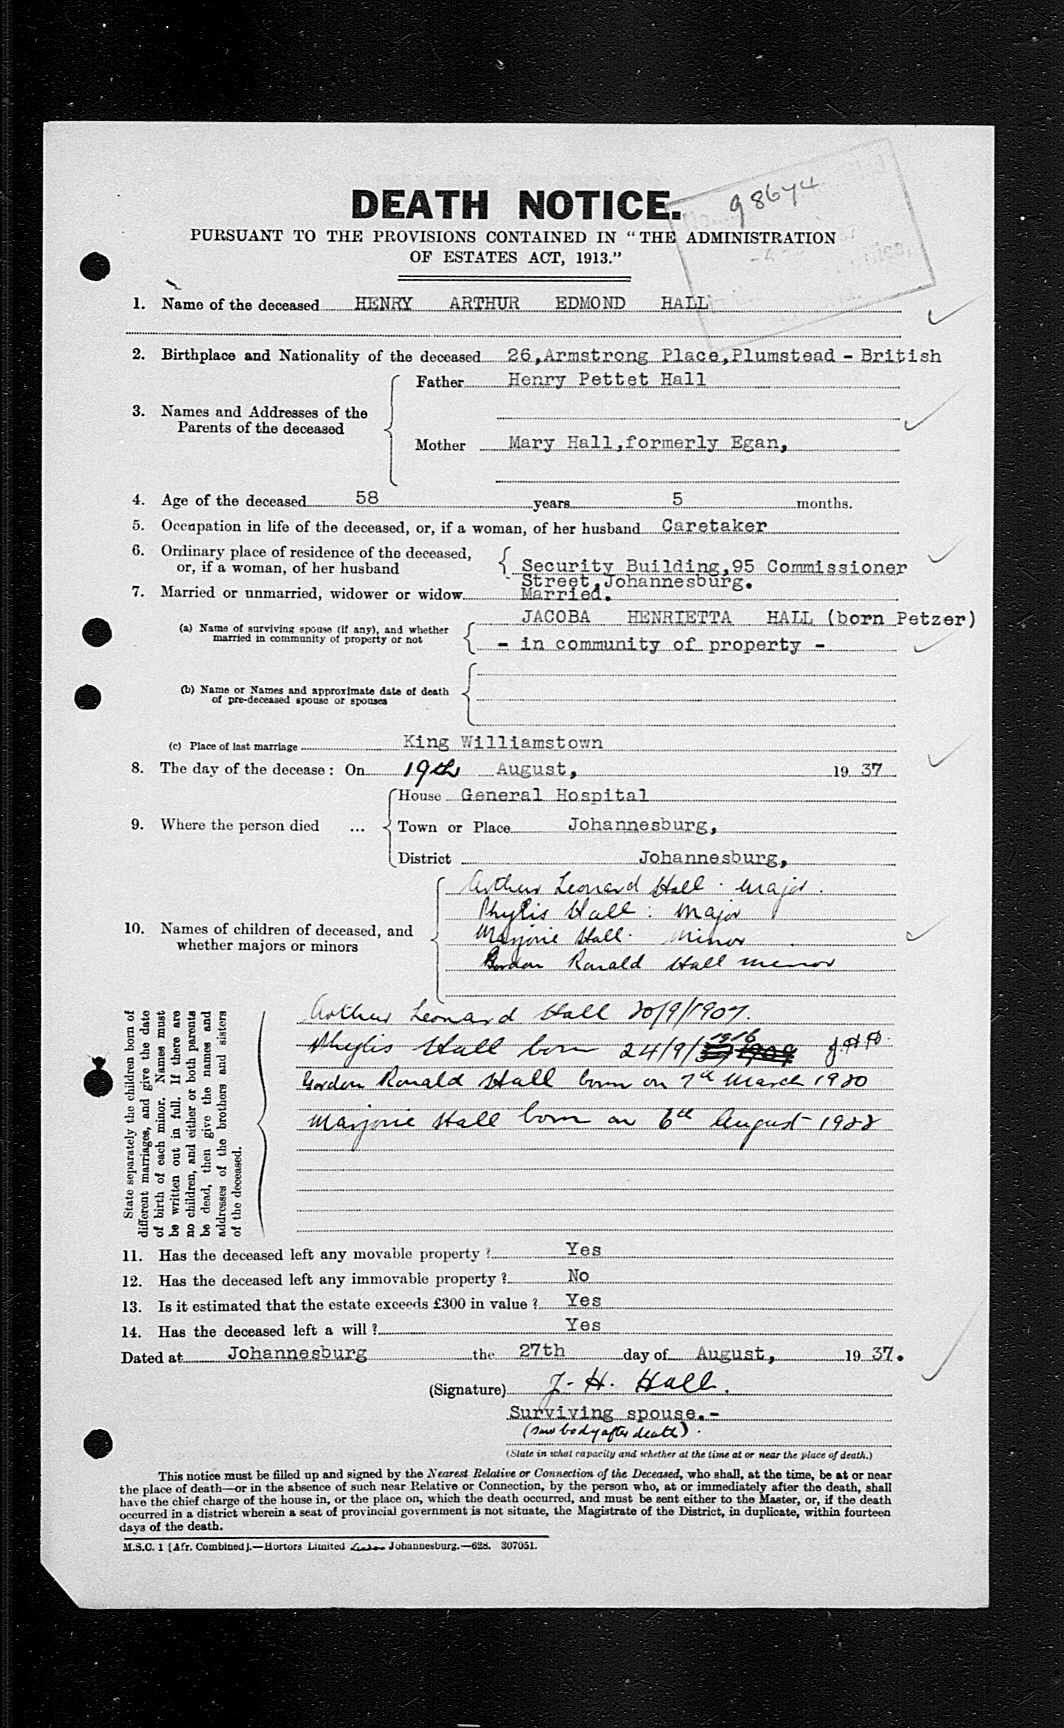 98674
DEATH NOTICE.
PURSUANT TO THE PROVISIONS CONTAINED IN "THE ADMINISTRATION
OF ESTATES ACT, 1913."
1. Name of the deceased HENRY ARTHUR EDMOND HALL
2. Birthplace and Nationality of the deceased 26,Armstrong Place,Plumstead - British
3. Names and Addresses of the Parents of the deceased
Father Henry Pettet Hall
Mother Mary Hall,formerly Egan,
4. Age of the deceased 58 years 5 months.
5. Occupation in life of the deceased, or, if a woman, of her husband Caretaker
6. Ordinary place of residence of the deceased,
or, if a woman, of her husband
Security Building,95 Commissioner
Street,Johannesburg.
7. Married or unmarried, widower or widow Married.
(a) Name of surviving spouse (if any), and whether
married in community of property or not
JACOBA HENRIETTA HALL (born Petzer)
- in community of property -
(b) Name or Names and approximate date of death
of pre-deceased spouse or spouses
(c) Place of last marriage King Williamstown
8. The day of the decease : On 19th August, 19 37
9. Where the person died ...
House General Hospital
Town or Place Johannesburg,
District Johannesburg,
10. Names of children of deceased, and
whether majors or minors
Arthur Leonard Hall . Major .
Phylis Hall : Major
Marjorie Hall . Minor .
Gordon Ronald Hall minor
State separately the children born of
different marriages, and give the date
of birth of each minor. Names must
be written out in full. If there are
no children, and either or both parents
be dead, then give the names and
addresses of the brothers and sisters
of the deceased.
Arthur Leonard Hall 20/9/1907.
Phylis Hall born 24/9/ 1916 J.H.H.
Gordon Ronald Hall born on 7th March 1920
Marjorie Hall born on 6th August 1922
11. Has the deceased left any movable property ? Yes
12. Has the deceased left any immovable property ? No
13. Is it estimated that the estate exceeds £300 in value ? Yes
14. Has the deceased left a will ? Yes
Dated at Johannesburg the 27th day of August, 19 37.
(Signature) J. H. Hall.
Surviving spouse.-
(saw body after death) .
(State in what capacity and whether at the time at or near the place of death.)
This notice must be filled up and signed by the Nearest Relative or Connection of the Deceased, who shall, at the time, be at or near
the place of death—or in the absence of such near Relative or Connection, by the person who, at or immediately after the death, shall
have the chief charge of the house in, or the place on, which the death occurred, and must be sent either to the Master, or, if the death
occurred in a district wherein a seat of provincial government is not situate, the Magistrate of the District, in duplicate, within fourteen
days of the death.
M.S.C. 1 [Afr. Combined].—Hortors Limited Johannesburg.—628. 307051.